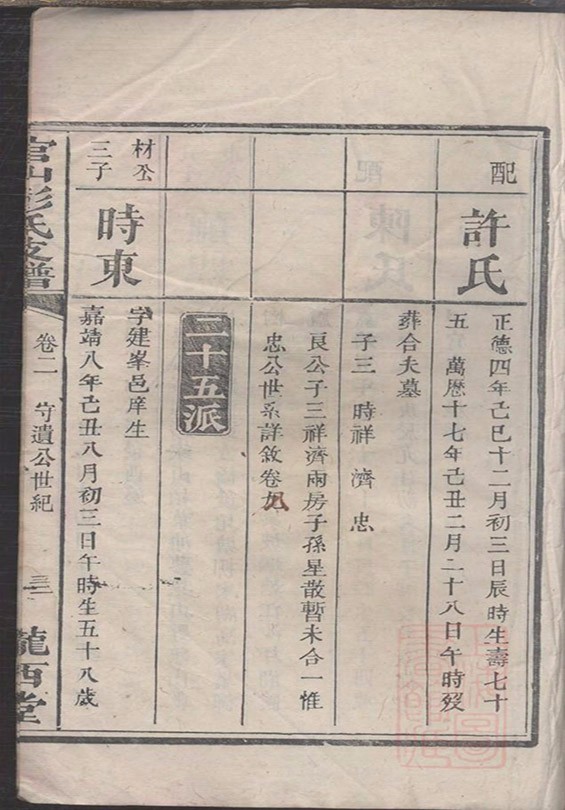 配
許氏
正德四年己巳十二月初三日辰時生壽七十
五 萬歷十七年己丑二月二十八日午時歿
葬合夫墓
子三 時祥 濟 忠
良公子三祥濟兩房子孫星散暫未合一惟
忠公世系詳敘卷九
二十五派
材公
三子
時東
字建峯邑庠生
嘉靖八年己丑八月初三日午時生五十八歲
官山彭氏支譜
卷二 守遺公世紀
隴西堂